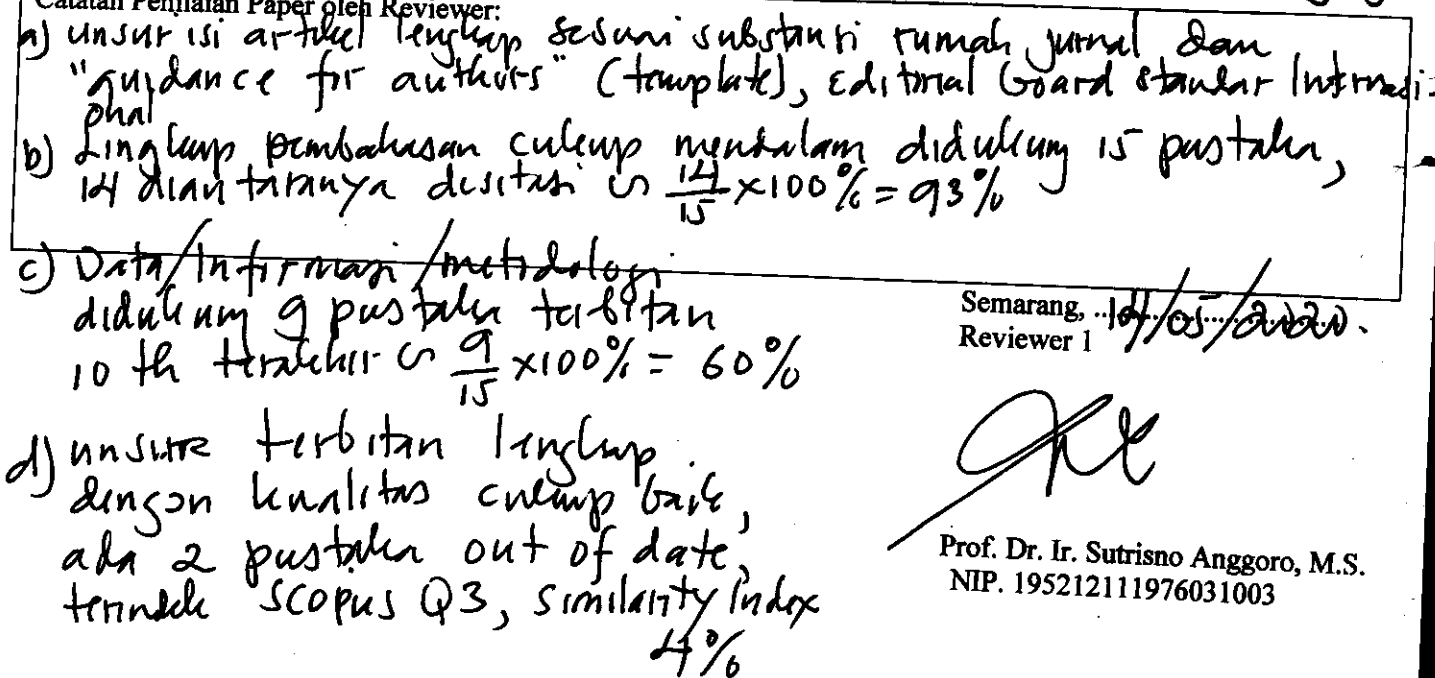 Catatan Penilaian Paper oleh Reviewer:
a) unsur isi artikel lengkap sesuai substansi rumah jurnal dan
"guidance for authors" (template), Editorial Board standar Internasi-
onal
b) Lingkup pembahasan cukup mendalam didukung 15 pustaka,
14 diantaranya disitasi ∽ 14/15 ×100% = 93%
c) Data/Informasi/metodologi
didukung 9 pustaka terbitan
10 th terakhir ∽ 9/15 ×100% = 60%
d) unsur terbitan lengkap
dengan kualitas cukup baik,
ada 2 pustaka out of date,
terindek SCOPUS Q3, Similarity Index
4%
Semarang, 14/05/2020.
Reviewer 1
Prof. Dr. Ir. Sutrisno Anggoro, M.S.
NIP. 195212111976031003